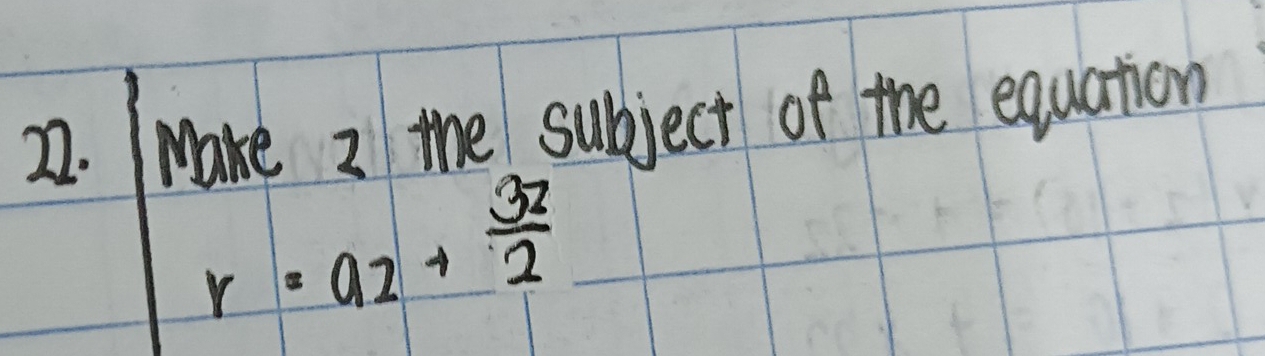 22. Make z the subject of the equation
r = az + 3z/2